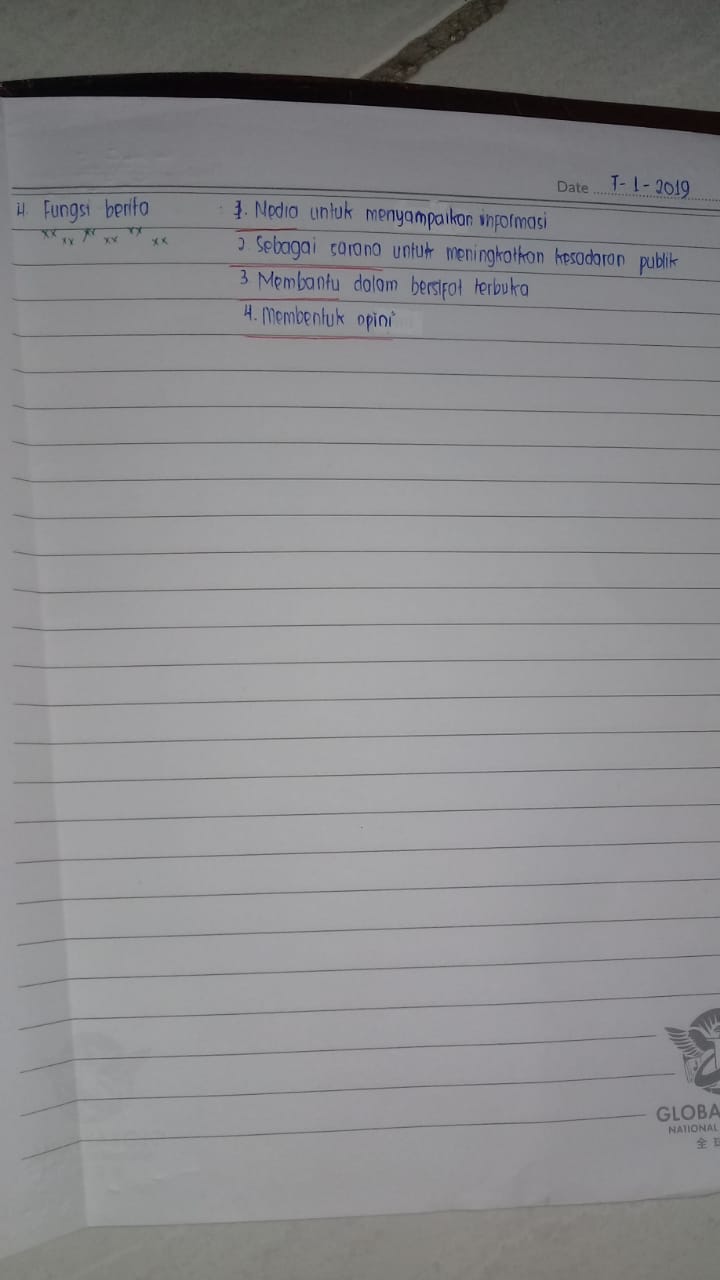 Date 7-1-2019
4. Fungsi berita
1. Media untuk menyampaikan informasi
2. Sebagai sarana untuk meningkatkan kesadaran publik
3. Membantu dalam bersifat terbuka
4. Membentuk opini
GLOBA
NATIONAL
全